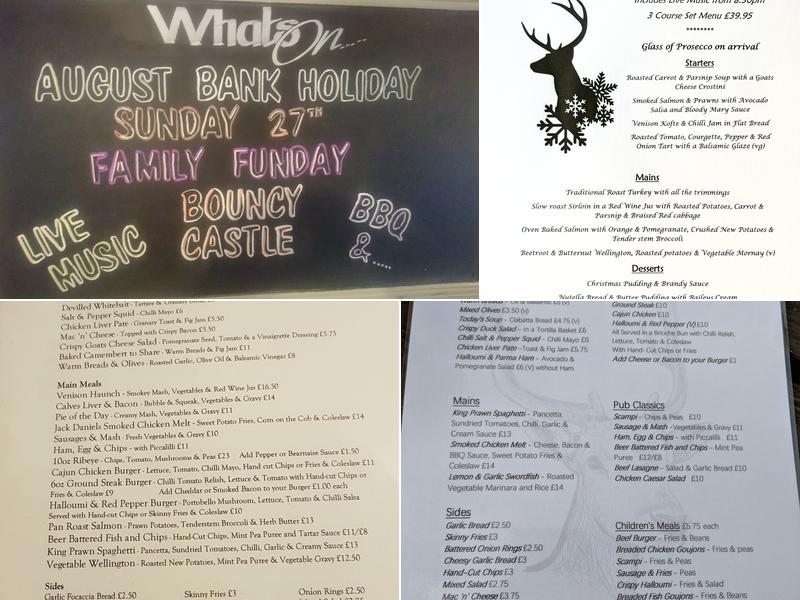 Whats On....
AUGUST BANK HOLIDAY
SUNDAY 27TH
FAMILY FUNDAY
BOUNCY
CASTLE
LIVE
MUSIC
BBQ
& .....
Includes Live Music from 8.30pm
3 Course Set Menu £39.95
********
Glass of Prosecco on arrival
Starters
Roasted Carrot & Parsnip Soup with a Goats
Cheese Crostini
Smoked Salmon & Prawns with Avocado
Salsa and Bloody Mary Sauce
Venison Kofte & Chilli Jam in Flat Bread
Roasted Tomato, Courgette, Pepper & Red
Onion Tart with a Balsamic Glaze (vg)
Mains
Traditional Roast Turkey with all the trimmings
Slow roast Sirloin in a Red Wine Jus with Roasted Potatoes, Carrot &
Parsnip & Braised Red cabbage
Oven Baked Salmon with Orange & Pomegranate, Crushed New Potatoes &
Tender stem Broccoli
Beetroot & Butternut Wellington, Roasted potatoes & Vegetable Mornay (v)
Desserts
Christmas Pudding & Brandy Sauce
Nutella Bread & Butter Pudding with Baileys Cream
Devilled Whitebait - Tartare & Granary Bread
Salt & Pepper Squid - Chilli Mayo £6
Chicken Liver Pate - Granary Toast & Fig Jam £5.50
Mac 'n' Cheese - Topped with Crispy Bacon £5.50
Crispy Goats Cheese Salad - Pomegranate Seed, Tomato & a Vinaigrette Dressing £5.75
Baked Camembert to Share - Warm Breads & Fig Jam £11
Warm Breads & Olives - Roasted Garlic, Olive Oil & Balsamic Vinegar £8
Main Meals
Venison Haunch - Smokey Mash, Vegetables & Red Wine Jus £16.50
Calves Liver & Bacon - Bubble & Squeak, Vegetables & Gravy £14
Pie of the Day - Creamy Mash, Vegetables & Gravy £11
Jack Daniels Smoked Chicken Melt - Sweet Potato Fries, Corn on the Cob & Coleslaw £14
Sausages & Mash - Fresh Vegetables & Gravy £10
Ham, Egg & Chips - with Piccalilli £11
10oz Ribeye - Chips, Tomato, Mushrooms & Peas £23 Add Pepper or Bearnaise Sauce £1.50
Cajun Chicken Burger - Lettuce, Tomato, Chilli Mayo, Hand cut Chips or Fries & Coleslaw £11
6oz Ground Steak Burger - Chilli Tomato Relish, Lettuce & Tomato with Hand-cut Chips or
Fries & Coleslaw £9 Add Cheddar or Smoked Bacon to your Burger £1.00 each
Halloumi & Red Pepper Burger - Portobello Mushroom, Lettuce, Tomato & Chilli Salsa
Served with Hand-cut Chips or Skinny Fries & Coleslaw £10
Pan Roast Salmon - Prawn Potatoes, Tenderstem Broccoli & Herb Butter £13
Beer Battered Fish and Chips - Hand-Cut Chips, Mint Pea Puree and Tartar Sauce £11/£8
King Prawn Spaghetti - Pancetta, Sundried Tomatoes, Chilli, Garlic & Creamy Sauce £13
Vegetable Wellington - Roasted New Potatoes, Mint Pea Puree & Vegetable Gravy £12.50
Sides
Garlic Focaccia Bread £2.50 Skinny Fries £3 Onion Rings £2.50
Mixed Olives £3.50 (v)
Today's Soup - Ciabatta Bread £4.75 (v)
Crispy Duck Salad - in a Tortilla Basket £6
Chilli Salt & Pepper Squid - Chilli Mayo £6
Chicken Liver Pate -Toast & Fig Jam £5.75
Halloumi & Parma Ham - Avocado &
Pomegranate Salad £6 (V) without Ham
Mains
King Prawn Spaghetti - Pancetta,
Sundried Tomatoes, Chilli, Garlic &
Cream Sauce £13
Smoked Chicken Melt - Cheese, Bacon &
BBQ Sauce, Sweet Potato Fries &
Coleslaw £14
Lemon & Garlic Swordfish - Roasted
Vegetable Marinara and Rice £14
Sides
Garlic Bread £2.50
Skinny Fries £3
Battered Onion Rings £2.50
Cheesy Garlic Bread £3
Hand-Cut Chips £3
Mixed Salad £2.75
Mac 'n' Cheese £3.75
Ground Steak £10
Cajun Chicken £10
Halloumi & Red Pepper (V) £10
All Served in a Brioche Bun with Chilli Relish,
Lettuce, Tomato & Coleslaw
With Hand-Cut Chips or Fries
Add Cheese or Bacon to your Burger £1
Pub Classics
Scampi - Chips & Peas £10
Sausage & Mash -Vegetables & Gravy £11
Ham, Egg & Chips - with Piccalilli £11
Beer Battered Fish and Chips - Mint Pea
Puree £12/£8
Beef Lasagne - Salad & Garlic Bread £10
Chicken Caesar Salad £10
Children's Meals £5.75 each
Beef Burger - Fries & Beans
Breaded Chicken Goujons - Fries & peas
Scampi - Fries & Peas
Sausage & Fries - Peas
Crispy Halloumi - Fries & Salad
Breaded Fish Goujons - Fries & Beans